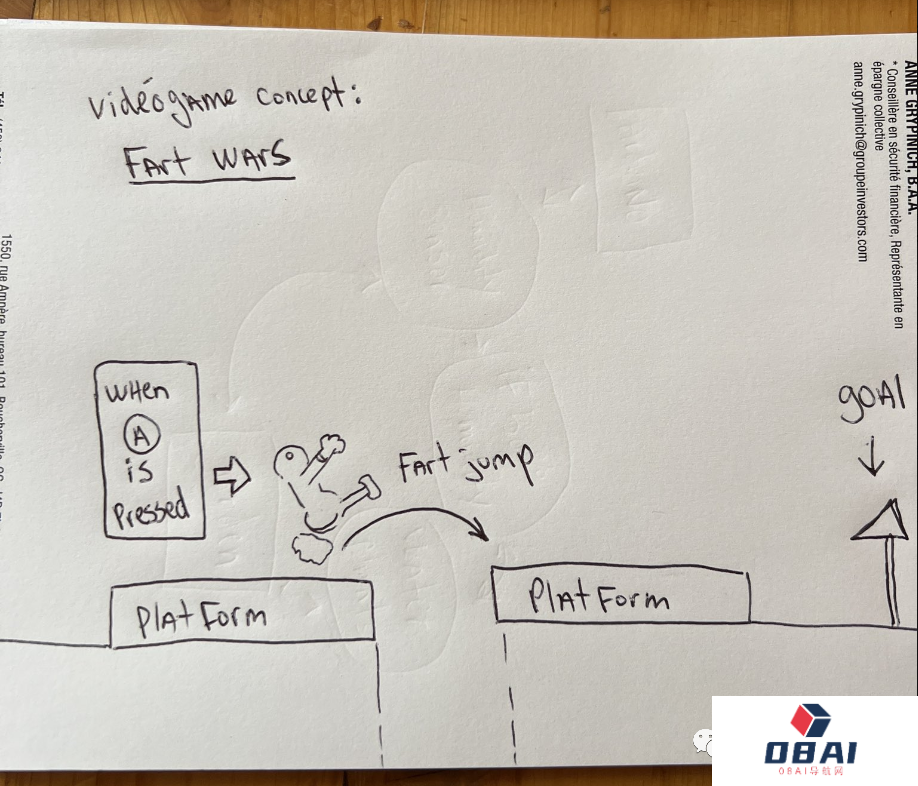 vidéogame concept:
Fart Wars
ANNE GRYPINICH, B.A.A.
* Conseillère en sécurité financière, Représentante en
épargne collective
anne.grypinich@groupeinvestors.com
When
A
is
Pressed
Fart jump
goal
Platform
Platform
1550, rue Ampère, bureau 101,
OBAI
OBAI导航网